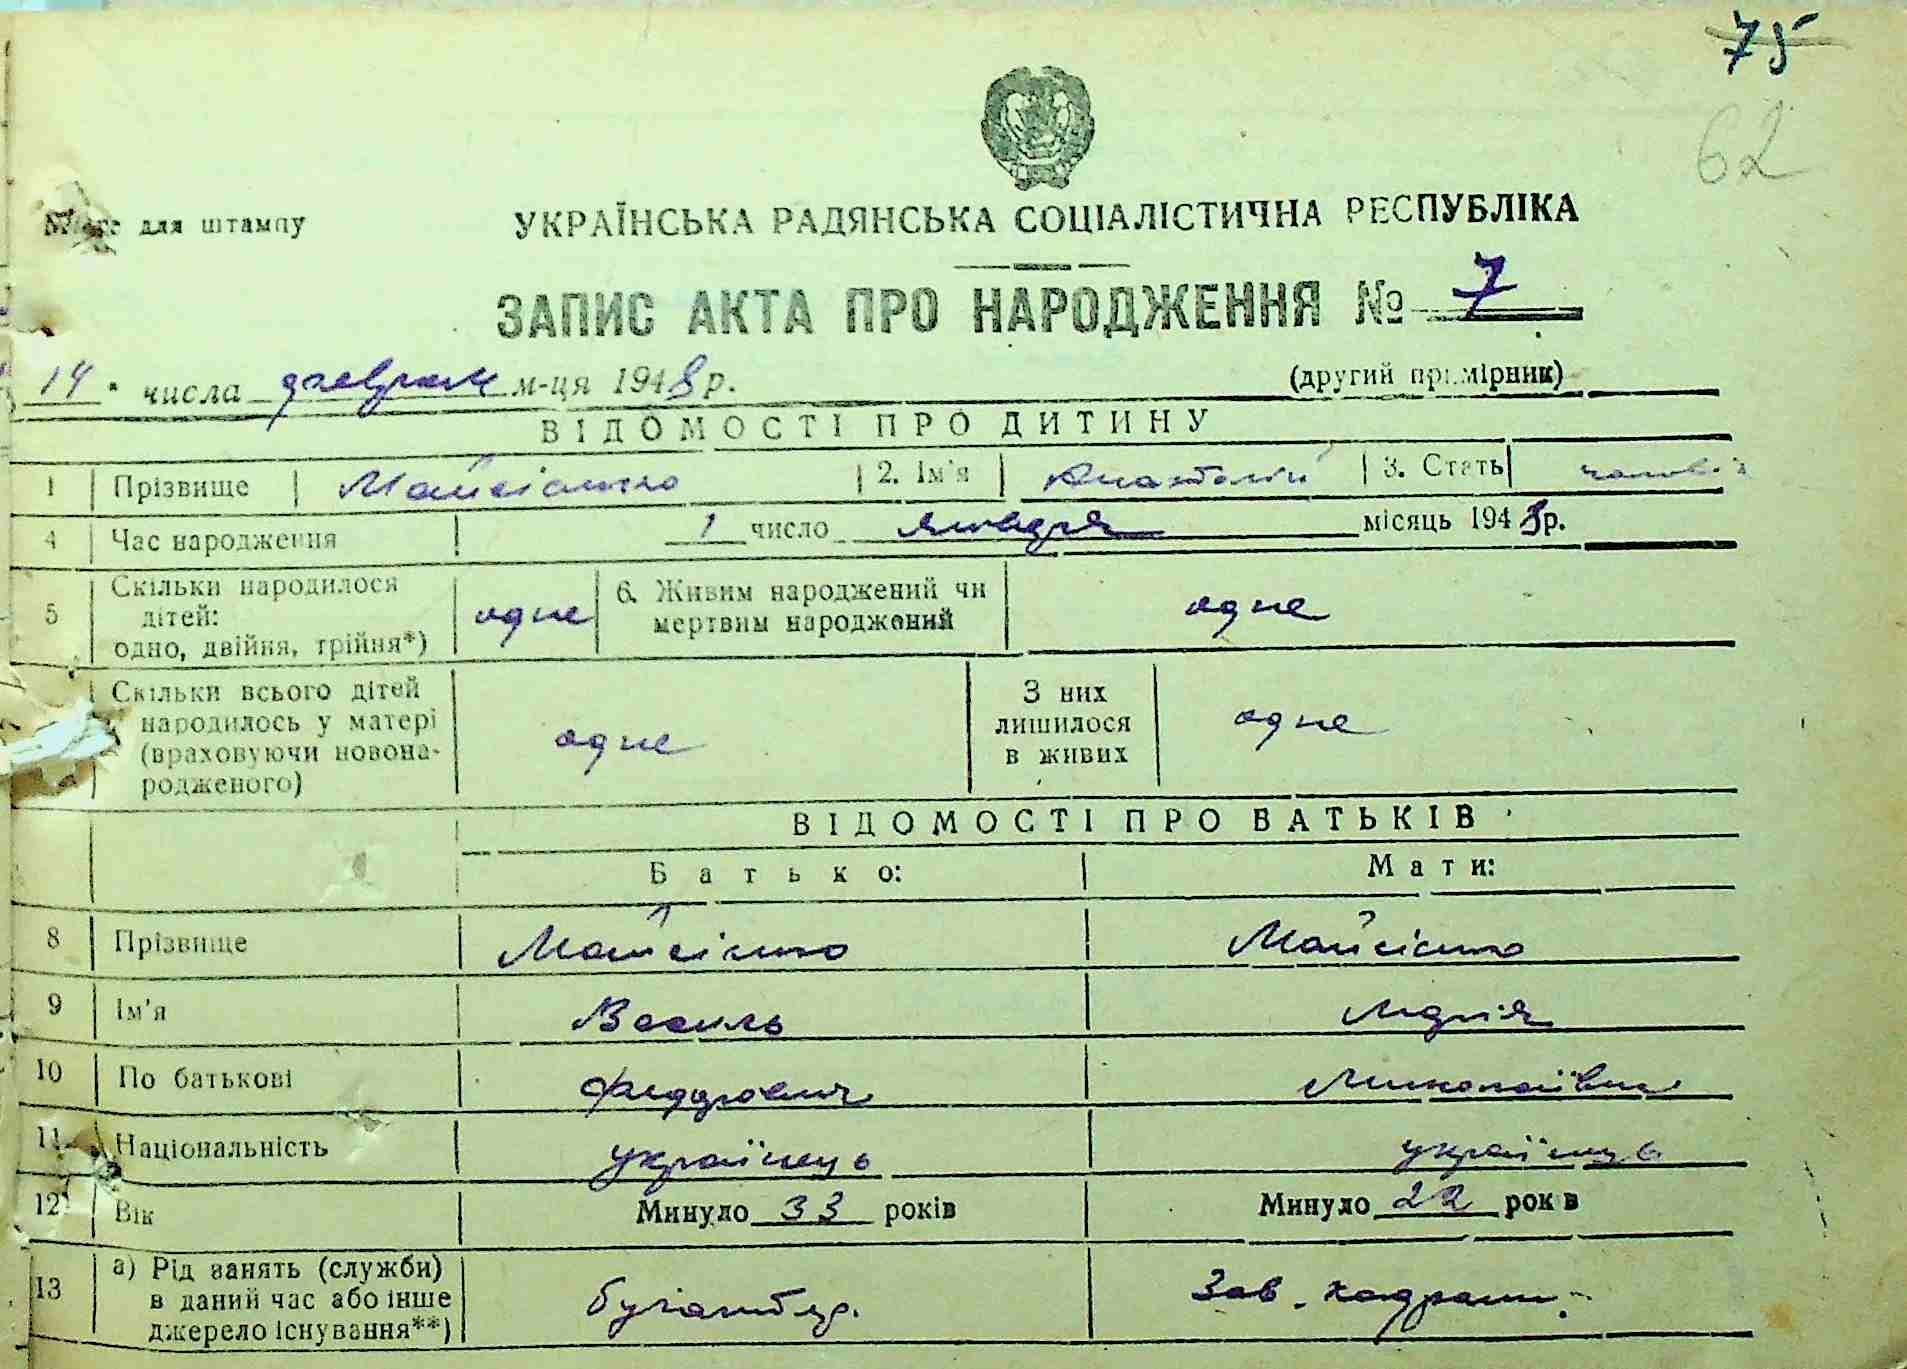 75
62
Місце для штампу
УКРАЇНСЬКА РАДЯНСЬКА СОЦІАЛІСТИЧНА РЕСПУБЛІКА
ЗАПИС АКТА ПРО НАРОДЖЕННЯ № 7
14 " числа февраля м-ця 1948 р. (другий примірник)
ВІДОМОСТІ ПРО ДИТИНУ
1 Прізвище 2. Ім'я Анатолій 3. Стать
4 Час народження 1 число января місяць 1948 р.
5 Скільки народилося дітей: одно, двійня, трійня*) одне 6. Живим народжений чи мертвим народжений одне
Скільки всього дітей народилось у матері (враховуючи новонародженого) одне З них лишилося в живих одне
ВІДОМОСТІ ПРО БАТЬКІВ
Батько: Мати:
8 Прізвище
9 Ім'я Василь Марія
10 По батькові Федорович Миколаївна
11 Національність українець українець
12 Вік Минуло 33 років Минуло 22 років
13 а) Рід занять (служби) в даний час або інше джерело існування**) бугалтер. Зав. кадрами.